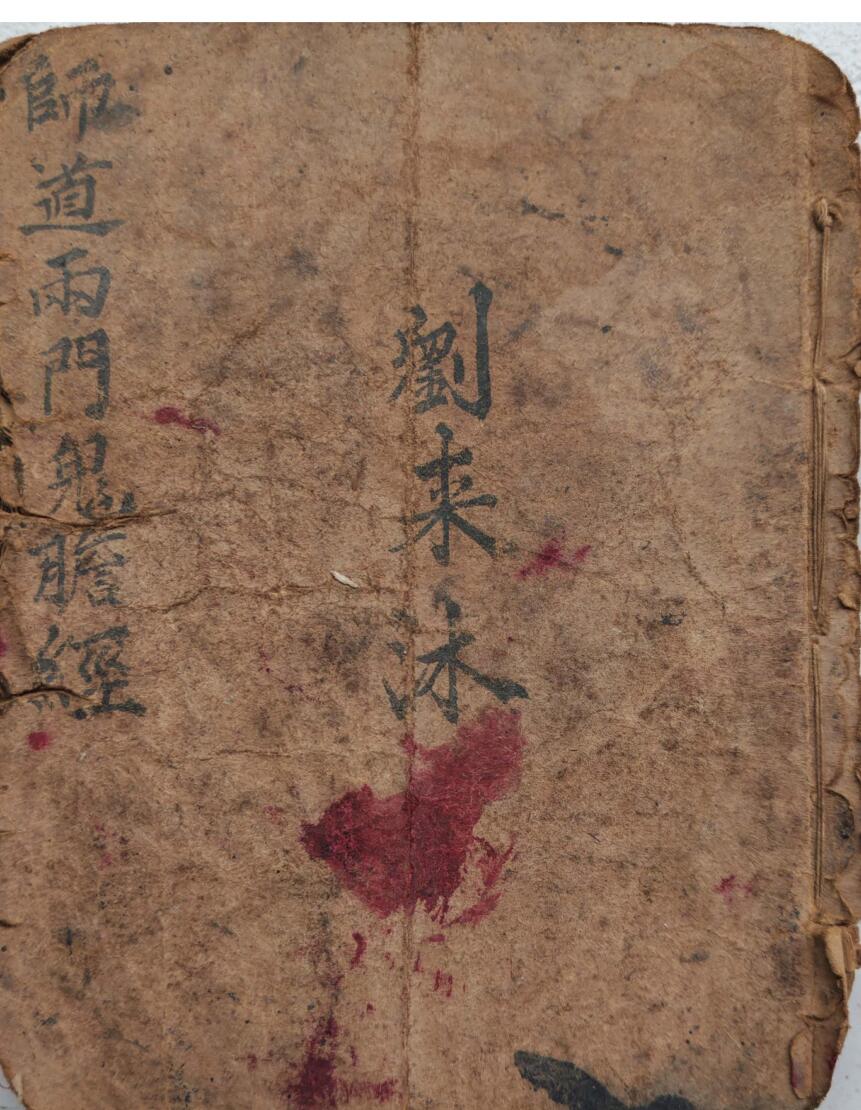 劉来沐
師道両門鬼膽經